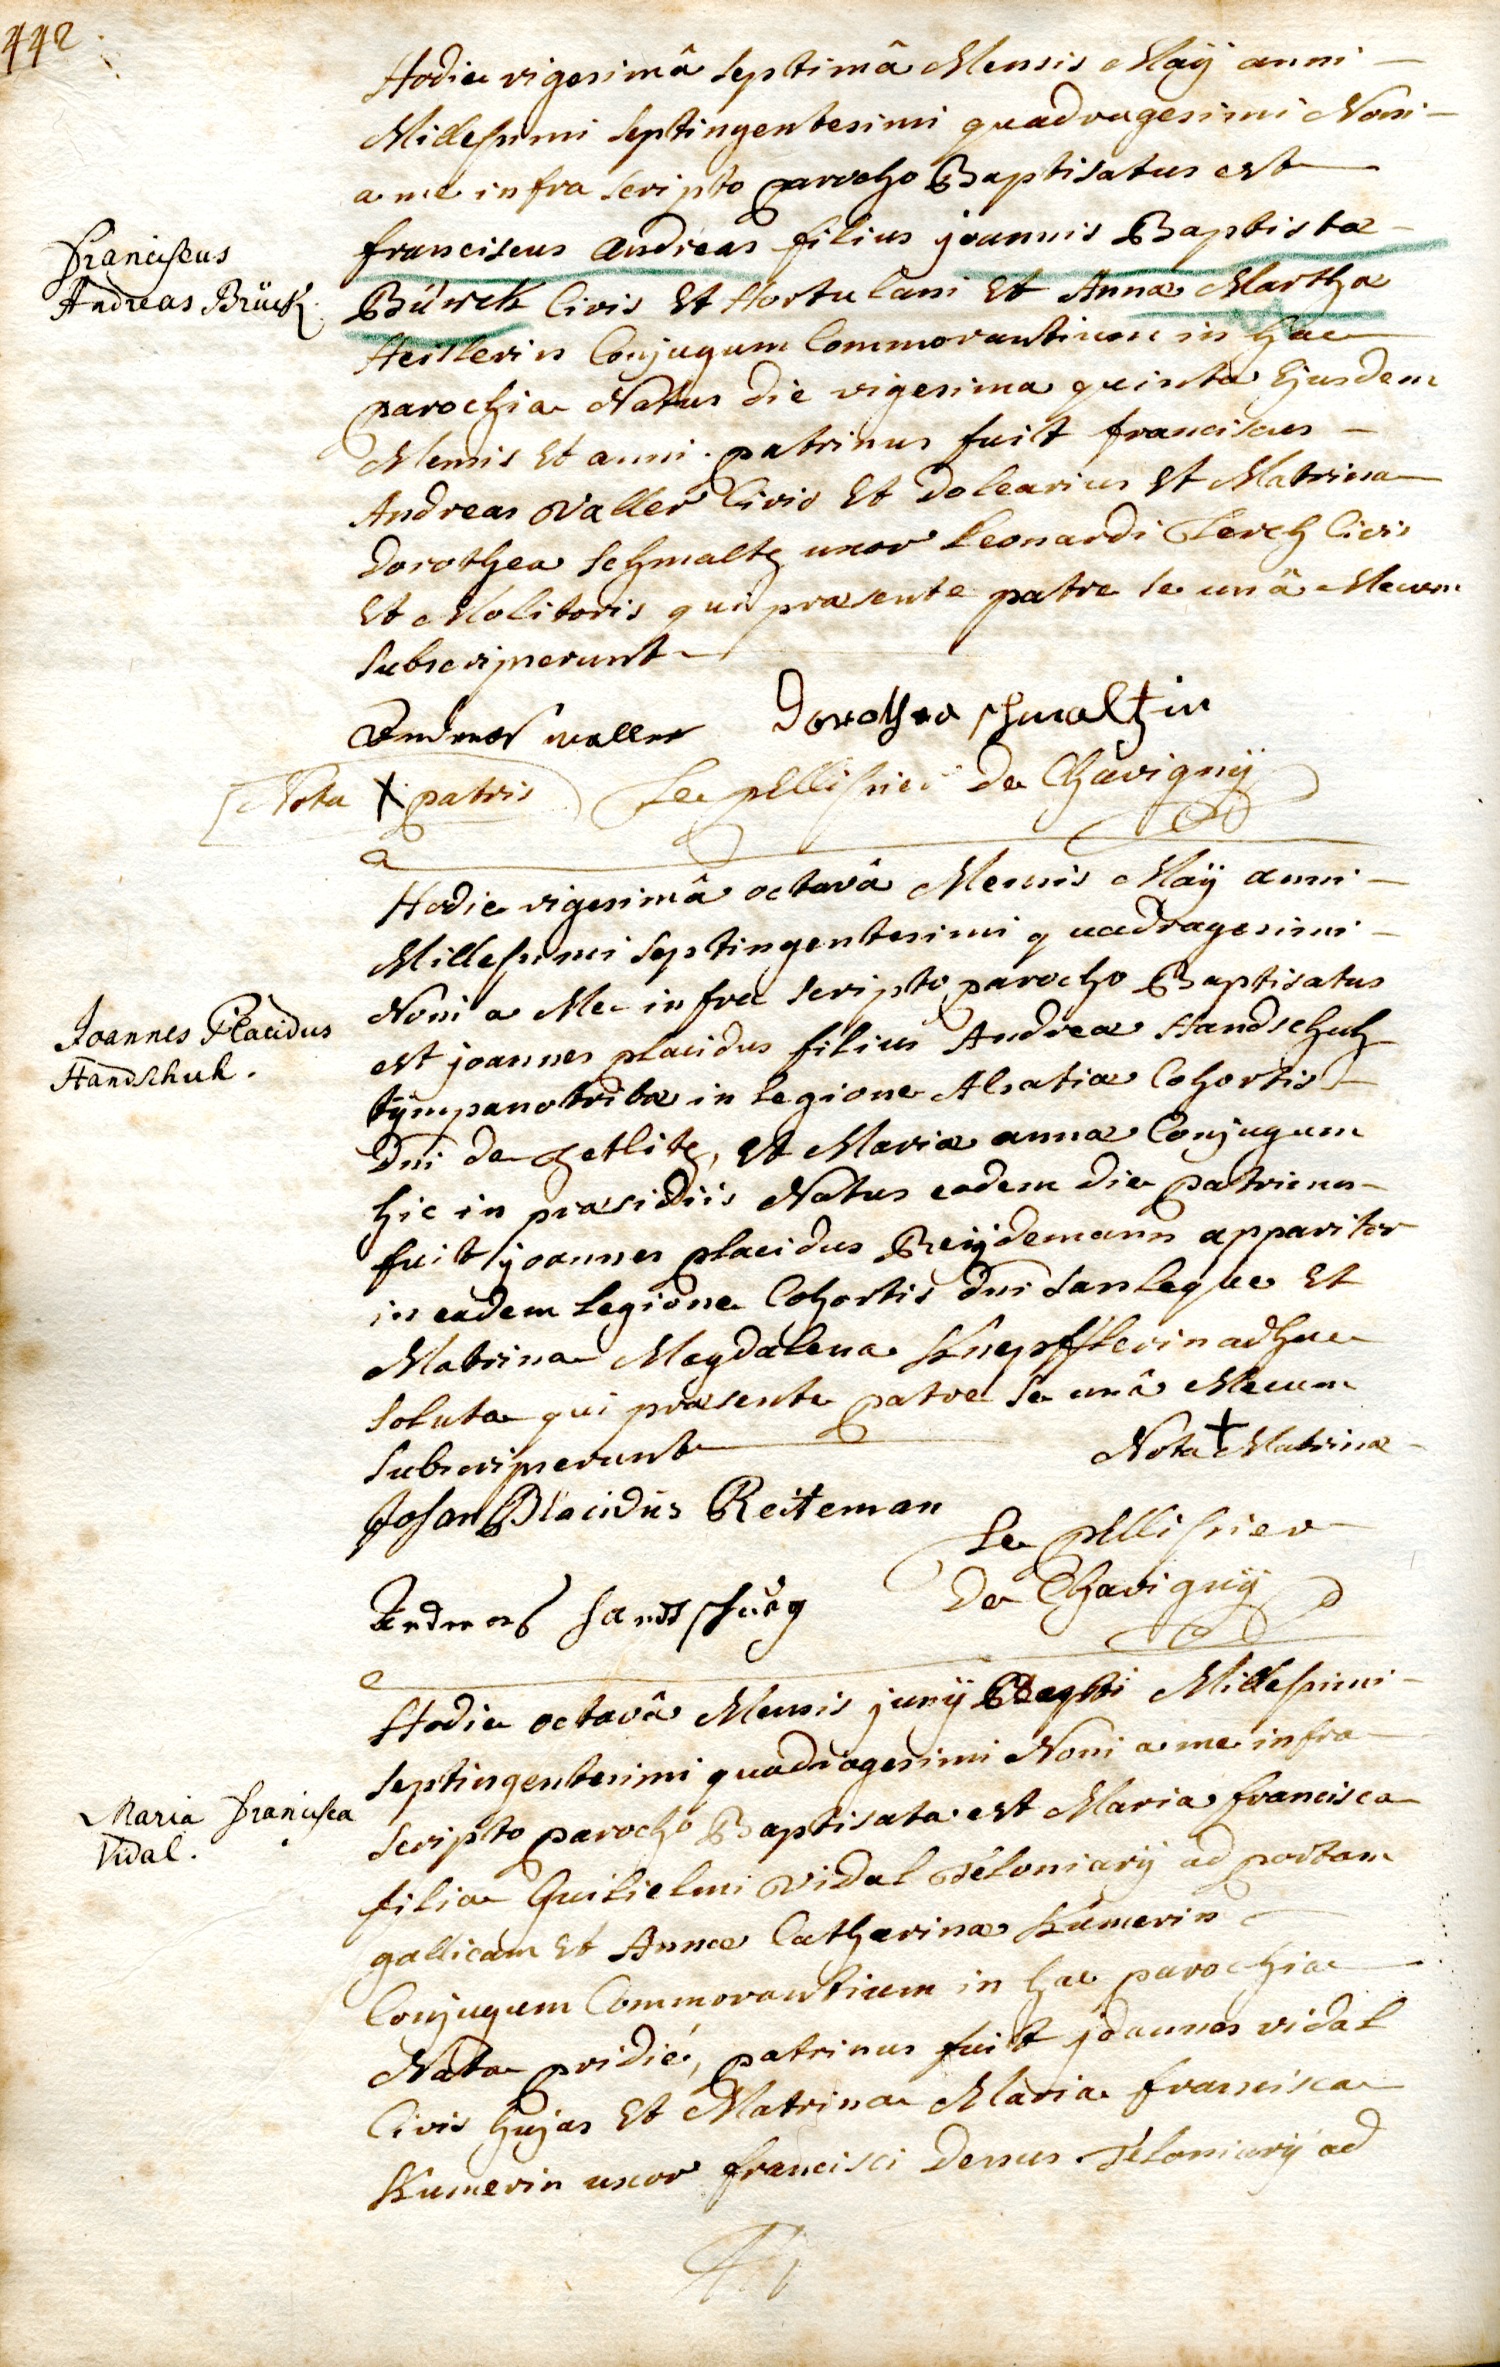 442.
Hodie vigesimâ septimâ Mensis Maÿ anni
Millesimi septingentesimi quadragesimi Noni
a me infra scripto parocho Baptisatus est
franciscus andreas filius joannis Baptistæ
Franciscus
Andreas Brück.
Bürck Civis Et Hortulani Et Annæ Marthæ
Heislerin Conjugum Commorantium in hac
parochia Natus die vigesima quinta Ejusdem
Mensis Et anni. patrinus fuit franciscus
Andreas Waller Civis Et dolearius Et Matrina
Dorothea Schmaltz uxor Leonardi Lerch Civis
Et Molitoris qui præsente patre se unâ Mecum
subscripserunt
Andreas waller Dorothea schmaltzin
Nota X patris Le pellissier De Chavignÿ
Hodie vigesimâ octavâ Mensis Maÿ anni
Millesimi septingentesimi quadragesimi
Noni a Me infra scripto parocho Baptisatus
Joannes Placidus
Handschuh.
est joannes placidus filius Andreæ Handschuh
tÿmpanotribæ in legione Alsatiæ Cohortis
Dni de zetlitz, Et Mariæ annæ Conjugum
hic in præsidiis Natus eadem die patrinus
fuit joannes placidus Reÿdemann apparitor
in eadem legione Cohortis dni Sanlegue Et
Matrina Magdalena Knepfflerin adhuc
soluta qui præsente patre se unâ Mecum
subscripserunt
Nota + Matrinæ
Johan Placidus Reiteman
Le pellissier
De Chavignÿ
Andreas handschueg
Hodie octavâ Mensis junÿ Millesimi
septingentesimi quadragesimi Noni a me infra
scripto parocho Baptisata est Maria francisca
Maria Francisca
Vidal.
filia Guilielmi vidal Teloniarÿ ad portam
gallicam Et Annæ Catharinæ Kumerin
Conjugum Commorantium in hac parochia
Nata pridie, patrinus fuit joannes vidal
Civis hujas Et Matrina Maria francisca
Kumerin uxor francisci Teloniarÿ ad